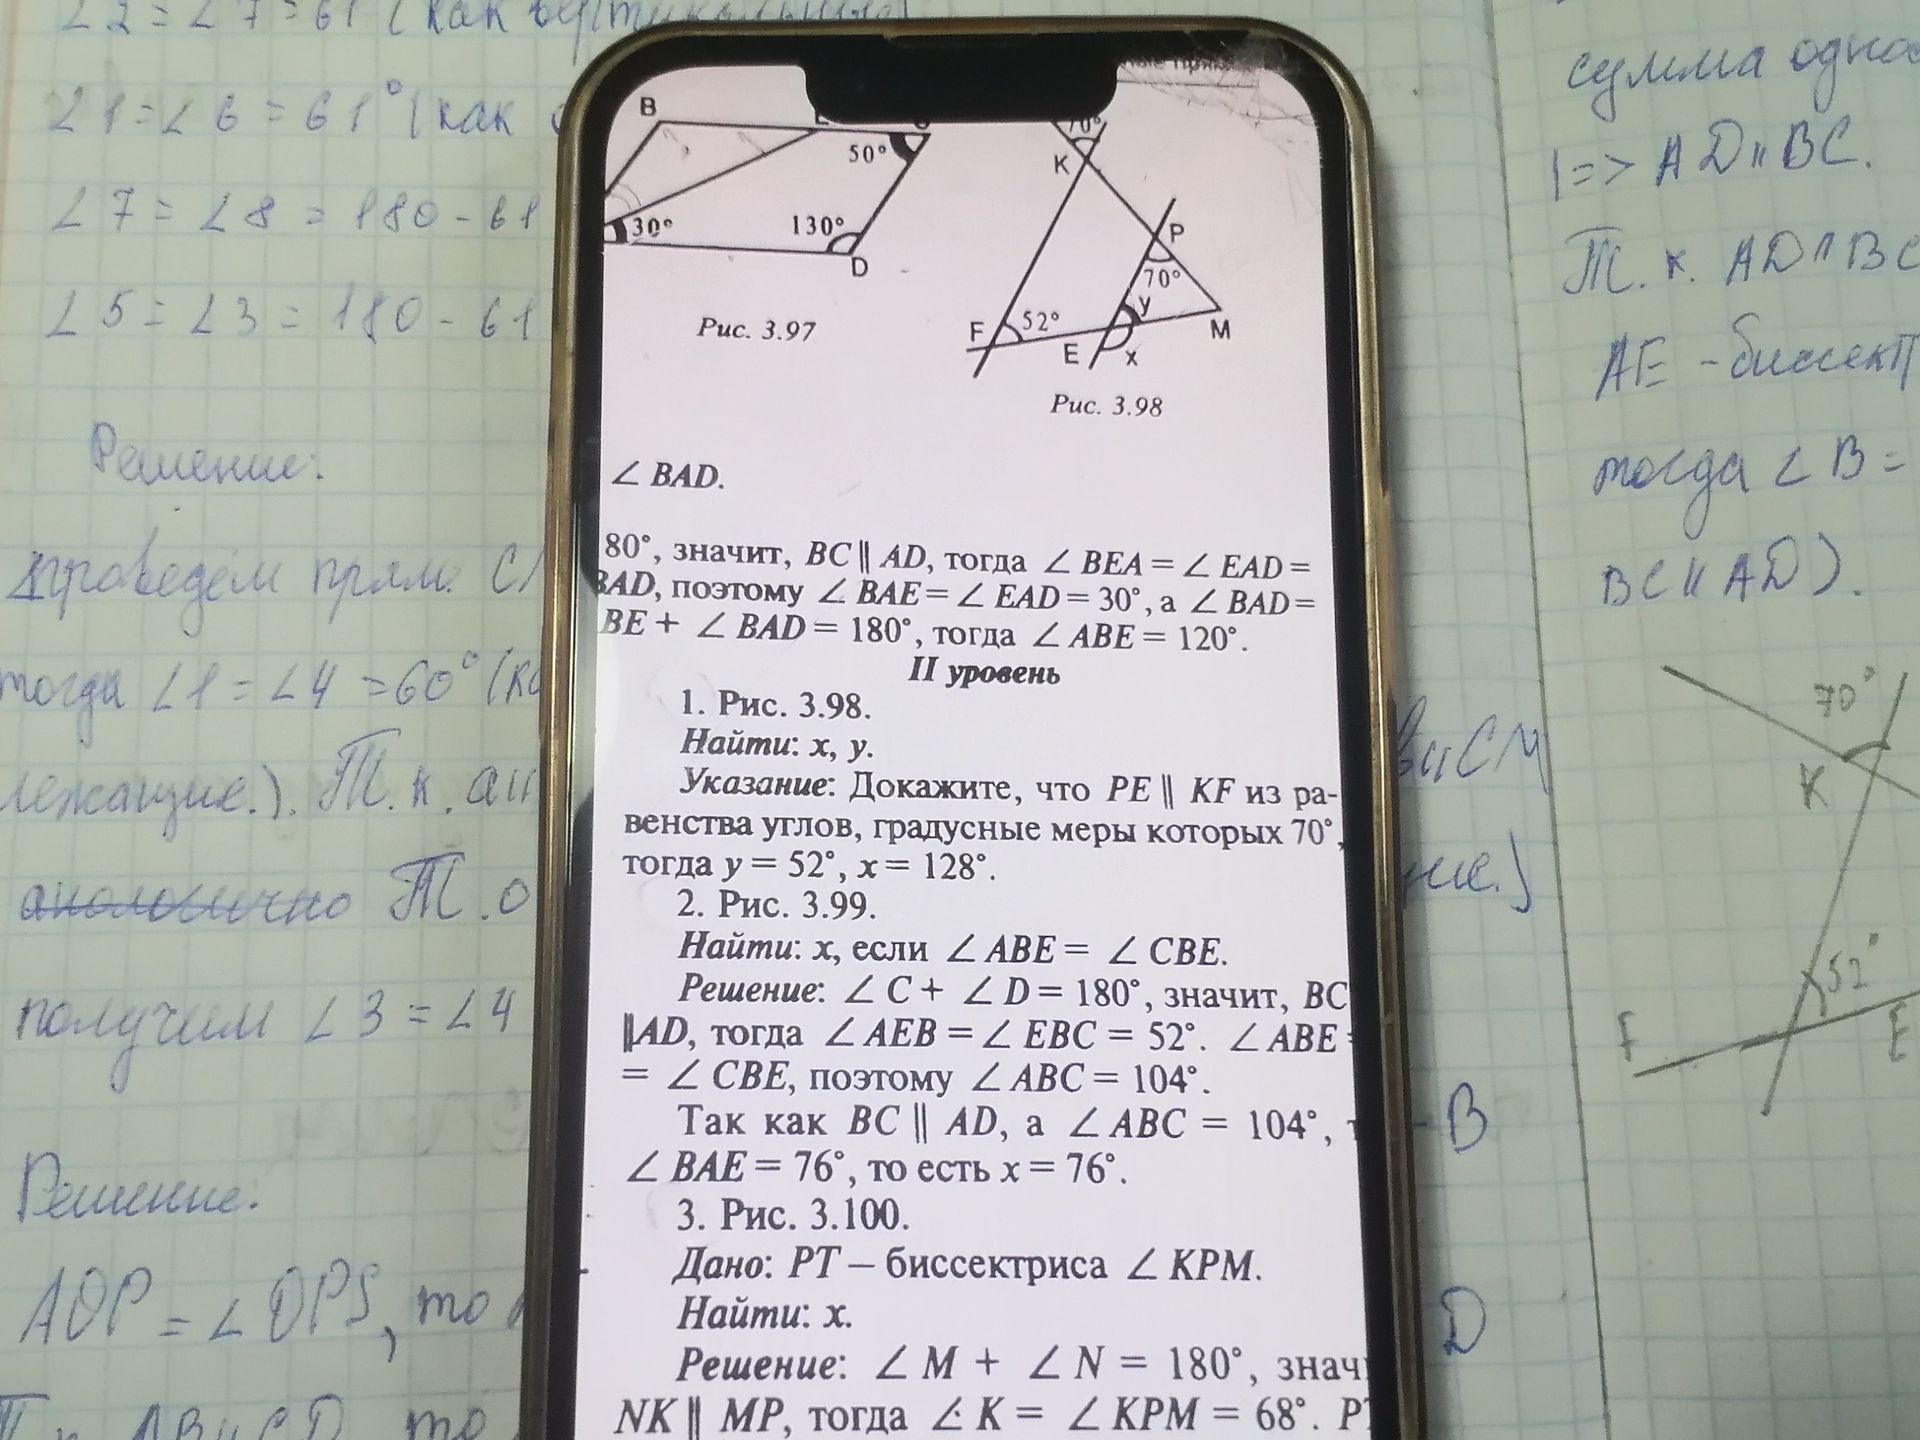 ∠2 = ∠7 = 61 (как вертикальные)
∠1 = ∠6 = 61° (как
∠7 = ∠8 = 180 - 61
∠5 = ∠3 = 180 - 61
Решение:
проведём прям. CM
тогда ∠1 = ∠4 = 60°
лежащие.). Т.к.
аналогично Т.о
получим ∠3 = ∠4
Решение:
AOP = ∠OPS, то
AB ∥ CD, то
B
50°
30°
130°
D
Рис. 3.97
70°
K
P
70°
y
F
52°
E
x
M
Рис. 3.98
∠ BAD.
80°, значит, BC ∥ AD, тогда ∠ BEA = ∠ EAD =
BAD, поэтому ∠ BAE = ∠ EAD = 30°, а ∠ BAD =
BE + ∠ BAD = 180°, тогда ∠ ABE = 120°.
II уровень
1. Рис. 3.98.
Найти: x, y.
Указание: Докажите, что PE ∥ KF из ра-
венства углов, градусные меры которых 70°,
тогда y = 52°, x = 128°.
2. Рис. 3.99.
Найти: x, если ∠ ABE = ∠ CBE.
Решение: ∠ C + ∠ D = 180°, значит, BC
∥AD, тогда ∠ AEB = ∠ EBC = 52°. ∠ ABE =
= ∠ CBE, поэтому ∠ ABC = 104°.
Так как BC ∥ AD, а ∠ ABC = 104°,
∠ BAE = 76°, то есть x = 76°.
3. Рис. 3.100.
Дано: PT – биссектриса ∠ KPM.
Найти: x.
Решение: ∠ M + ∠ N = 180°, знач
NK ∥ MP, тогда ∠ K = ∠ KPM = 68°. PT
CM
ие.)
B
D
сумма однос
=> AD ∥ BC.
Т.к. AD ∥ BC
AE - биссект
тогда ∠B =
BC ∥ AD).
70°
K
52°
F
E